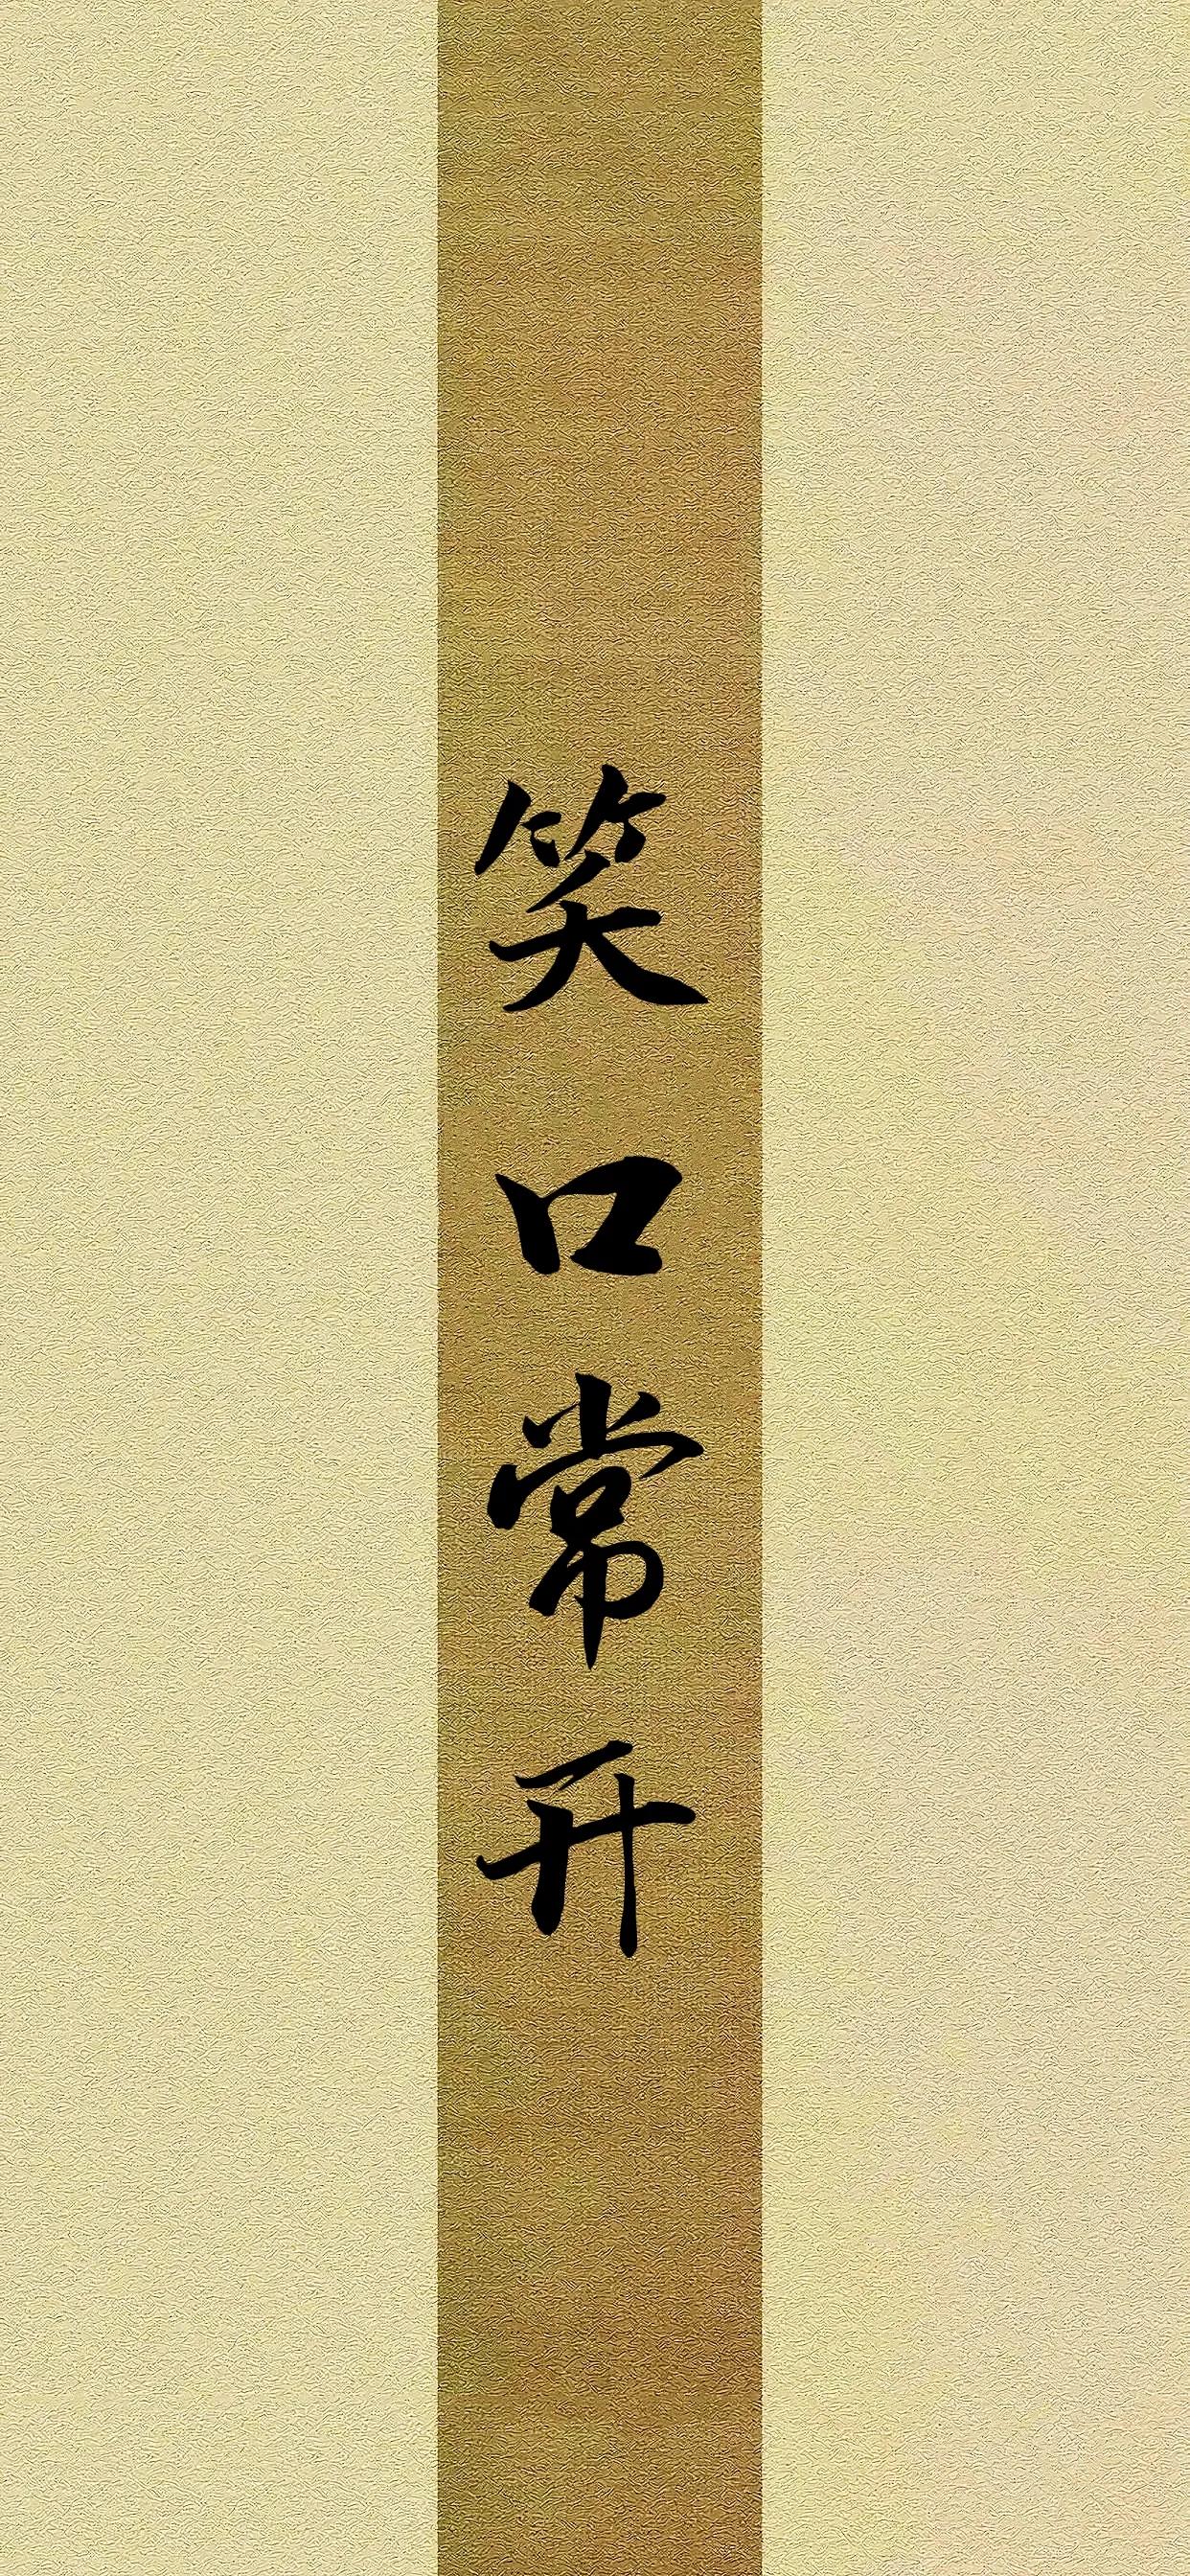 笑口常开